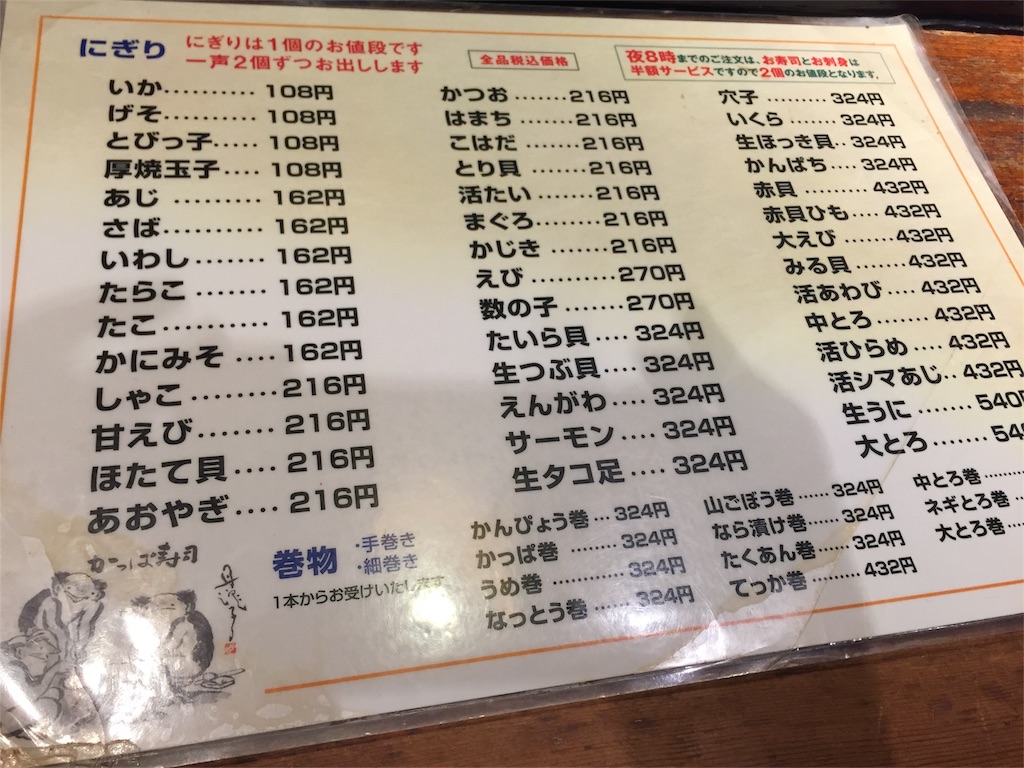 にぎり
にぎりは1個のお値段です
一声2個ずつお出しします
全品税込価格
夜8時までのご注文は、お寿司とお刺身は
半額サービスですので2個のお値段となります。
いか.......... 108円
げそ.......... 108円
とびっ子..... 108円
厚焼玉子.... 108円
あじ ......... 162円
さば.......... 162円
いわし........ 162円
たらこ ....... 162円
たこ.......... 162円
かにみそ .... 162円
しゃこ ........ 216円
甘えび....... 216円
ほたて貝.... 216円
あおやぎ.... 216円
かつお.......216円
はまち.......216円
こはだ .......216円
とり貝 .......216円
活たい .......216円
まぐろ.......216円
かじき .......216円
えび ..........270円
数の子 .......270円
たいら貝.... 324円
生つぶ貝.... 324円
えんがわ.... 324円
サーモン.... 324円
生タコ足.... 324円
穴子 ......... 324円
いくら ....... 324円
生ほっき貝.. 324円
かんぱち.... 324円
赤貝 ......... 432円
赤貝ひも.... 432円
大えび .......432円
みる貝 .......432円
活あわび .... 432円
中とろ....... 432円
活ひらめ.... 432円
活シマあじ.. 432円
生うに ....... 540円
大とろ........
巻物
・手巻き
・細巻き
1本からお受けいたします
かんぴょう巻 ... 324円
かっぱ巻 ....... 324円
うめ巻 ......... 324円
なっとう巻 ..... 324円
山ごぼう巻 ...... 324円
なら漬け巻 ...... 324円
たくあん巻 ...... 324円
てっか巻 ......... 432円
中とろ巻 .....
ネギとろ巻 ...
大とろ巻 .....
かっぱ寿司